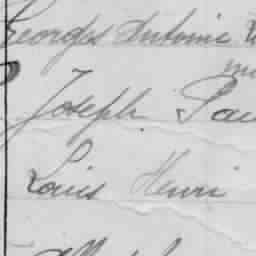 Georges Antoine
Joseph Pau
Louis Henri